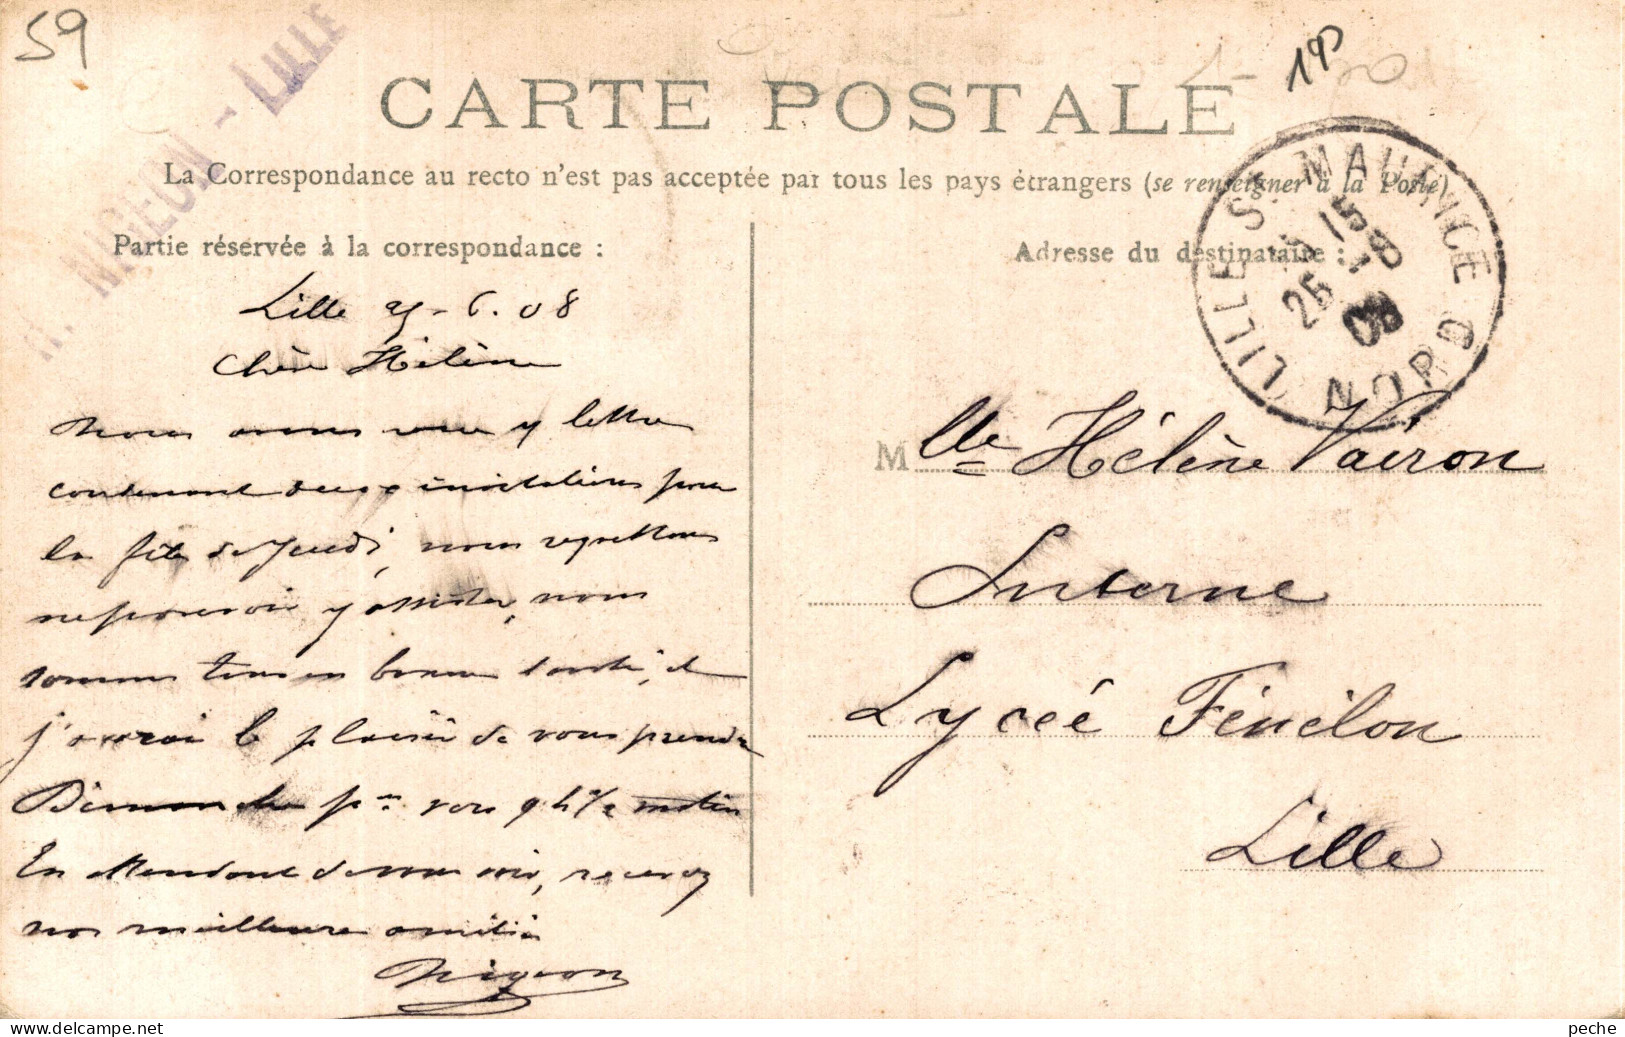 59
190
H. NIGEON - LILLE
CARTE POSTALE
La Correspondance au recto n'est pas acceptée par tous les pays étrangers (se renseigner à la Poste)
Partie réservée à la correspondance :
Adresse du destinataire :
LILLE S. MAURICE NORD
15
25 - 6
08
Lille 25-6.08
Chère Hélène
Nous avons reçu y lettre
contenant deux invitations pour
la fête de Jeudi, nous regrettons
ne pouvoir y assister, nous
sommes tous en bonne santé, et
j'aurai le plaisir de vous prendre
Dimanche pn vers 9 h 1/2 matin
En attendant de vous voir, recevez
nos meilleures amitiés
Nigeon
Mlle Hélène Vairon
Interne
Lycéé Fénélon
Lille
peche